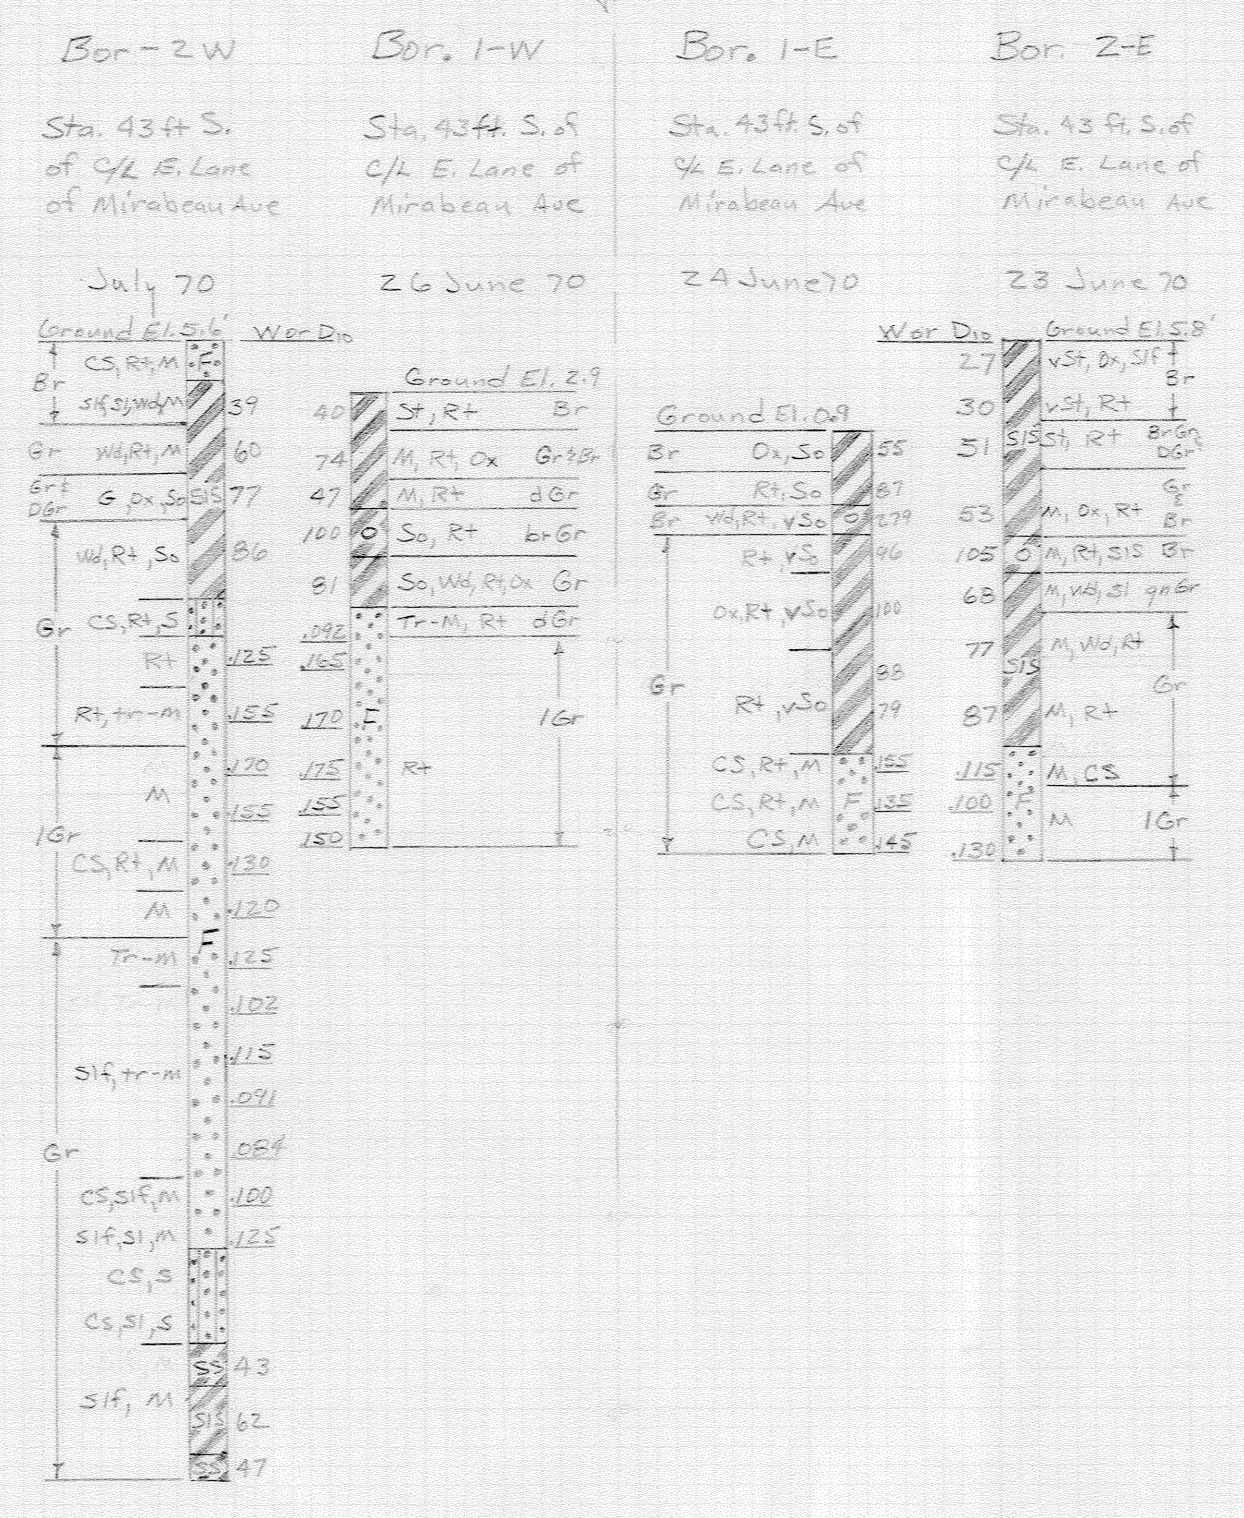 Bor - 2 W
Sta. 43 ft S.
of C/L E. Lane
of Mirabeau Ave
July 70
Ground El. 5.6'
W or D10
CS, Rt, M
F
Br
Slf, Sl, Wd, M
39
Gr
Wd, Rt, M
60
Gr &
DGr
G, Ox, So
SIS
77
Wd, Rt, So
86
Gr
CS, Rt, S
Rt
.125
Rt, tr-m
.155
.170
M
.155
1Gr
CS, Rt, M
.130
M
.120
F
Tr-m
.125
.102
.115
Slf, tr-m
.091
Gr
.084
CS, slf, M
.100
slf, sl, M
.125
CS, S
CS, Sl, S
SS
43
Slf, M
SIS
62
SS
47
Bor. 1-W
Sta. 43 ft. S. of
C/L E. Lane of
Mirabeau Ave
26 June 70
Ground El. 2.9
40
St, Rt
Br
74
M, Rt, Ox
Gr & Br
47
M, Rt
dGr
100
O
So, Rt
brGr
81
So, Wd, Rt, Ox
Gr
.092
Tr-M, Rt
dGr
.165
.170
F
1Gr
.175
Rt
.155
.150
Bor. 1-E
Sta. 43 ft. S. of
C/L E. Lane of
Mirabeau Ave
24 June 70
Ground El. 0.9
Br
Ox, So
55
Gr
Rt, So
87
Br
Wd, Rt, vSo
O
279
Rt, vSo
96
Ox, Rt, vSo
100
88
Gr
Rt, vSo
79
CS, Rt, M
.155
CS, Rt, M
F
.135
CS, M
.145
Bor. 2-E
Sta. 43 ft. S. of
C/L E. Lane of
Mirabeau Ave
23 June 70
W or D10
Ground El. 5.8'
27
vSt, Ox, Slf
Br
30
vSt, Rt
51
SIS
St, Rt
BrGr &
DGr
Gr
&
Br
53
M, Ox, Rt
105
O
M, Rt, SIS
Br
68
M, Wd, Sl
gnGr
77
M, Wd, Rt
SIS
Gr
87
M, Rt
.115
M, CS
.100
F
M
1Gr
.130